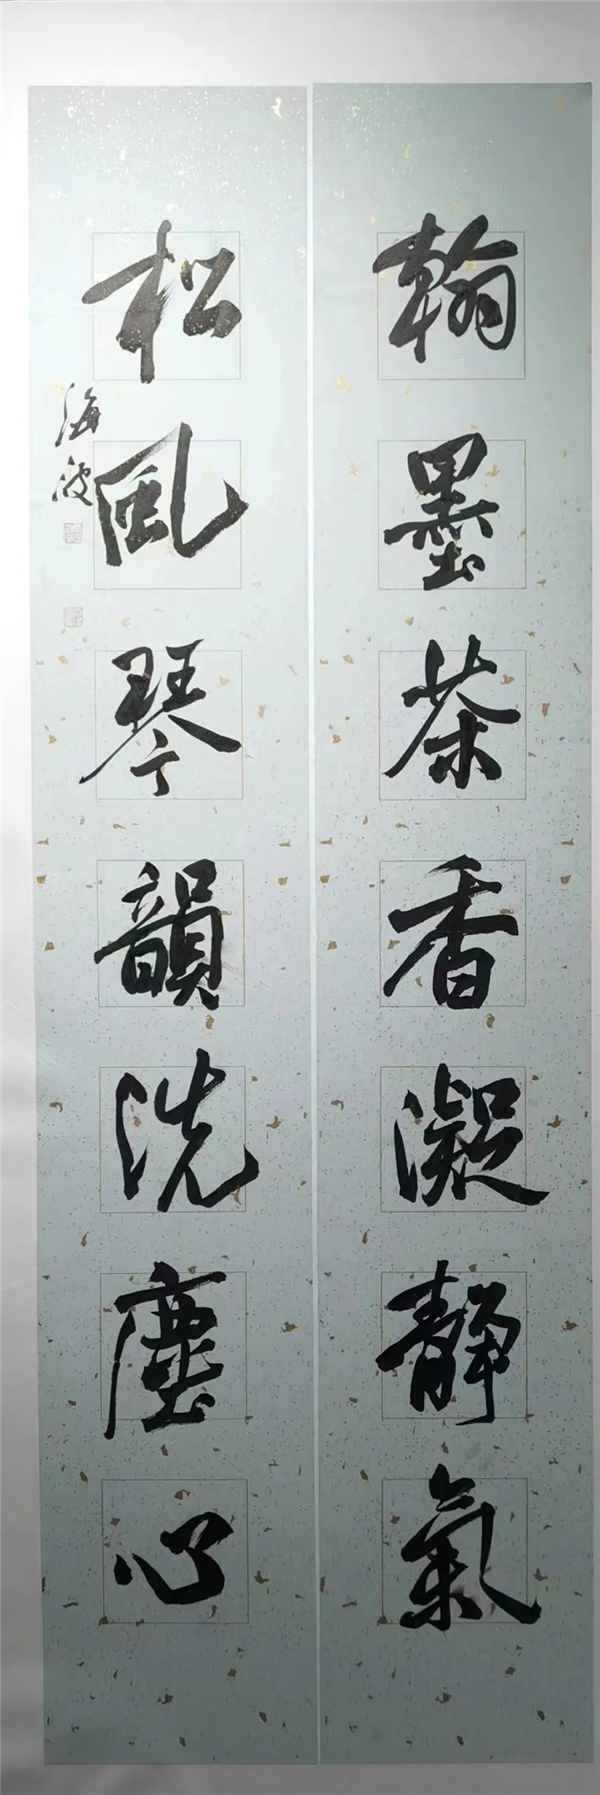 翰墨茶香凝靜氣
松風琴韻洗塵心
海波